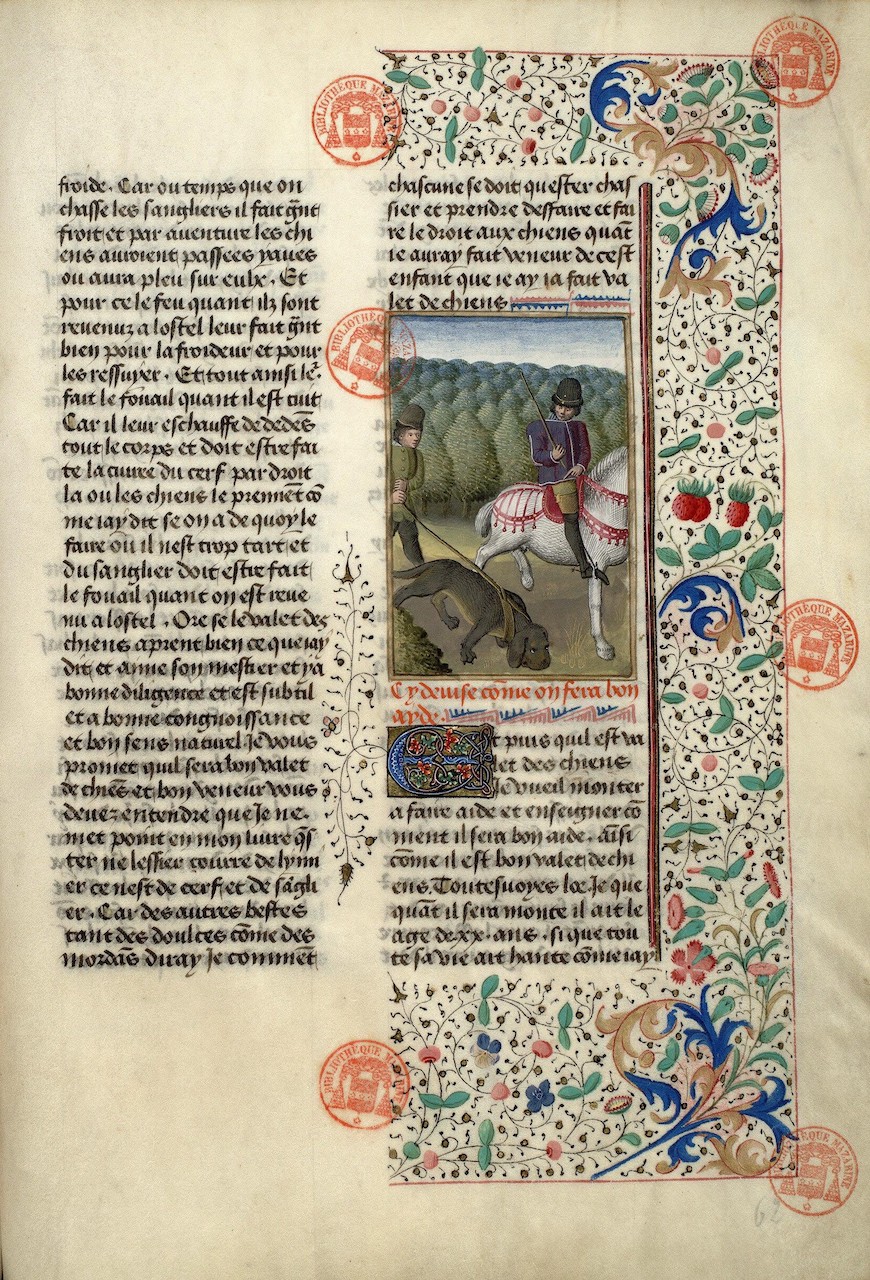 froide. Car ou temps que on
chasse les sangliers il fait gñt
froit et par aventure les chi
ens auroient passees yaues
ou aura pleu sur eulx. Et
pour ce le feu quant ilz sont
revenuz a lostel leur fait gñt
bien pour la froideur et pour
les ressuyer. Et tout ainsi le
fait le fouail quant il est cuit
Car il leur eschauffe dededēs
tout le corps et doit estre fai
te la cuiree du cerf par droit
la ou les chiens le prennēt cō
me iay dit se on a de quoy le
faire ou il nest trop tart et
du sanglier doit estre fait
le fouail quant on est reve
nu a lostel. Ore se le valet des
chiens aprent bien ce que iay
dit et aime son mestier et y a
bonne diligence et est subtil
et a bonne congnoissance
et bon sens naturel Je vous
promet quil sera bon valet
de chiēs et bon veneur vous
devez entendre que Je ne
met point en mon livre q̄s
ter ne lessier courre de lymi
er ce nest de cerf et de sāgli
er. Car des autres bestes
tant des doulces cōme des
mordās diray Je commēt
chascune se doit quester chas
sier et prendre deffaire et fai
re le droit aux chiens quāt
ie auray fait veneur de cest
enfant que ie ay ia fait va
let de chiens
Cy devise cōme on fera bon
ayde.
Et puis quil est va
let des chiens
Je vueil monter
a faire aide et enseigner cō
ment il sera bon aide. aīsi
cōme il est bon valet de chi
ens. Toutesvoyes loe Je que
quāt il sera monte il ait le
age de .xx. ans. si que tou
te sa vie ait hante cōme iay
BIBLIOTHÈQUE MAZARINE
BIBLIOTHÈQUE MAZARINE
BIBLIOTHÈQUE MAZARINE
BIBLIOTHÈQUE MAZARINE
BIBLIOTHÈQUE MAZARINE
BIBLIOTHÈQUE MAZARINE
62